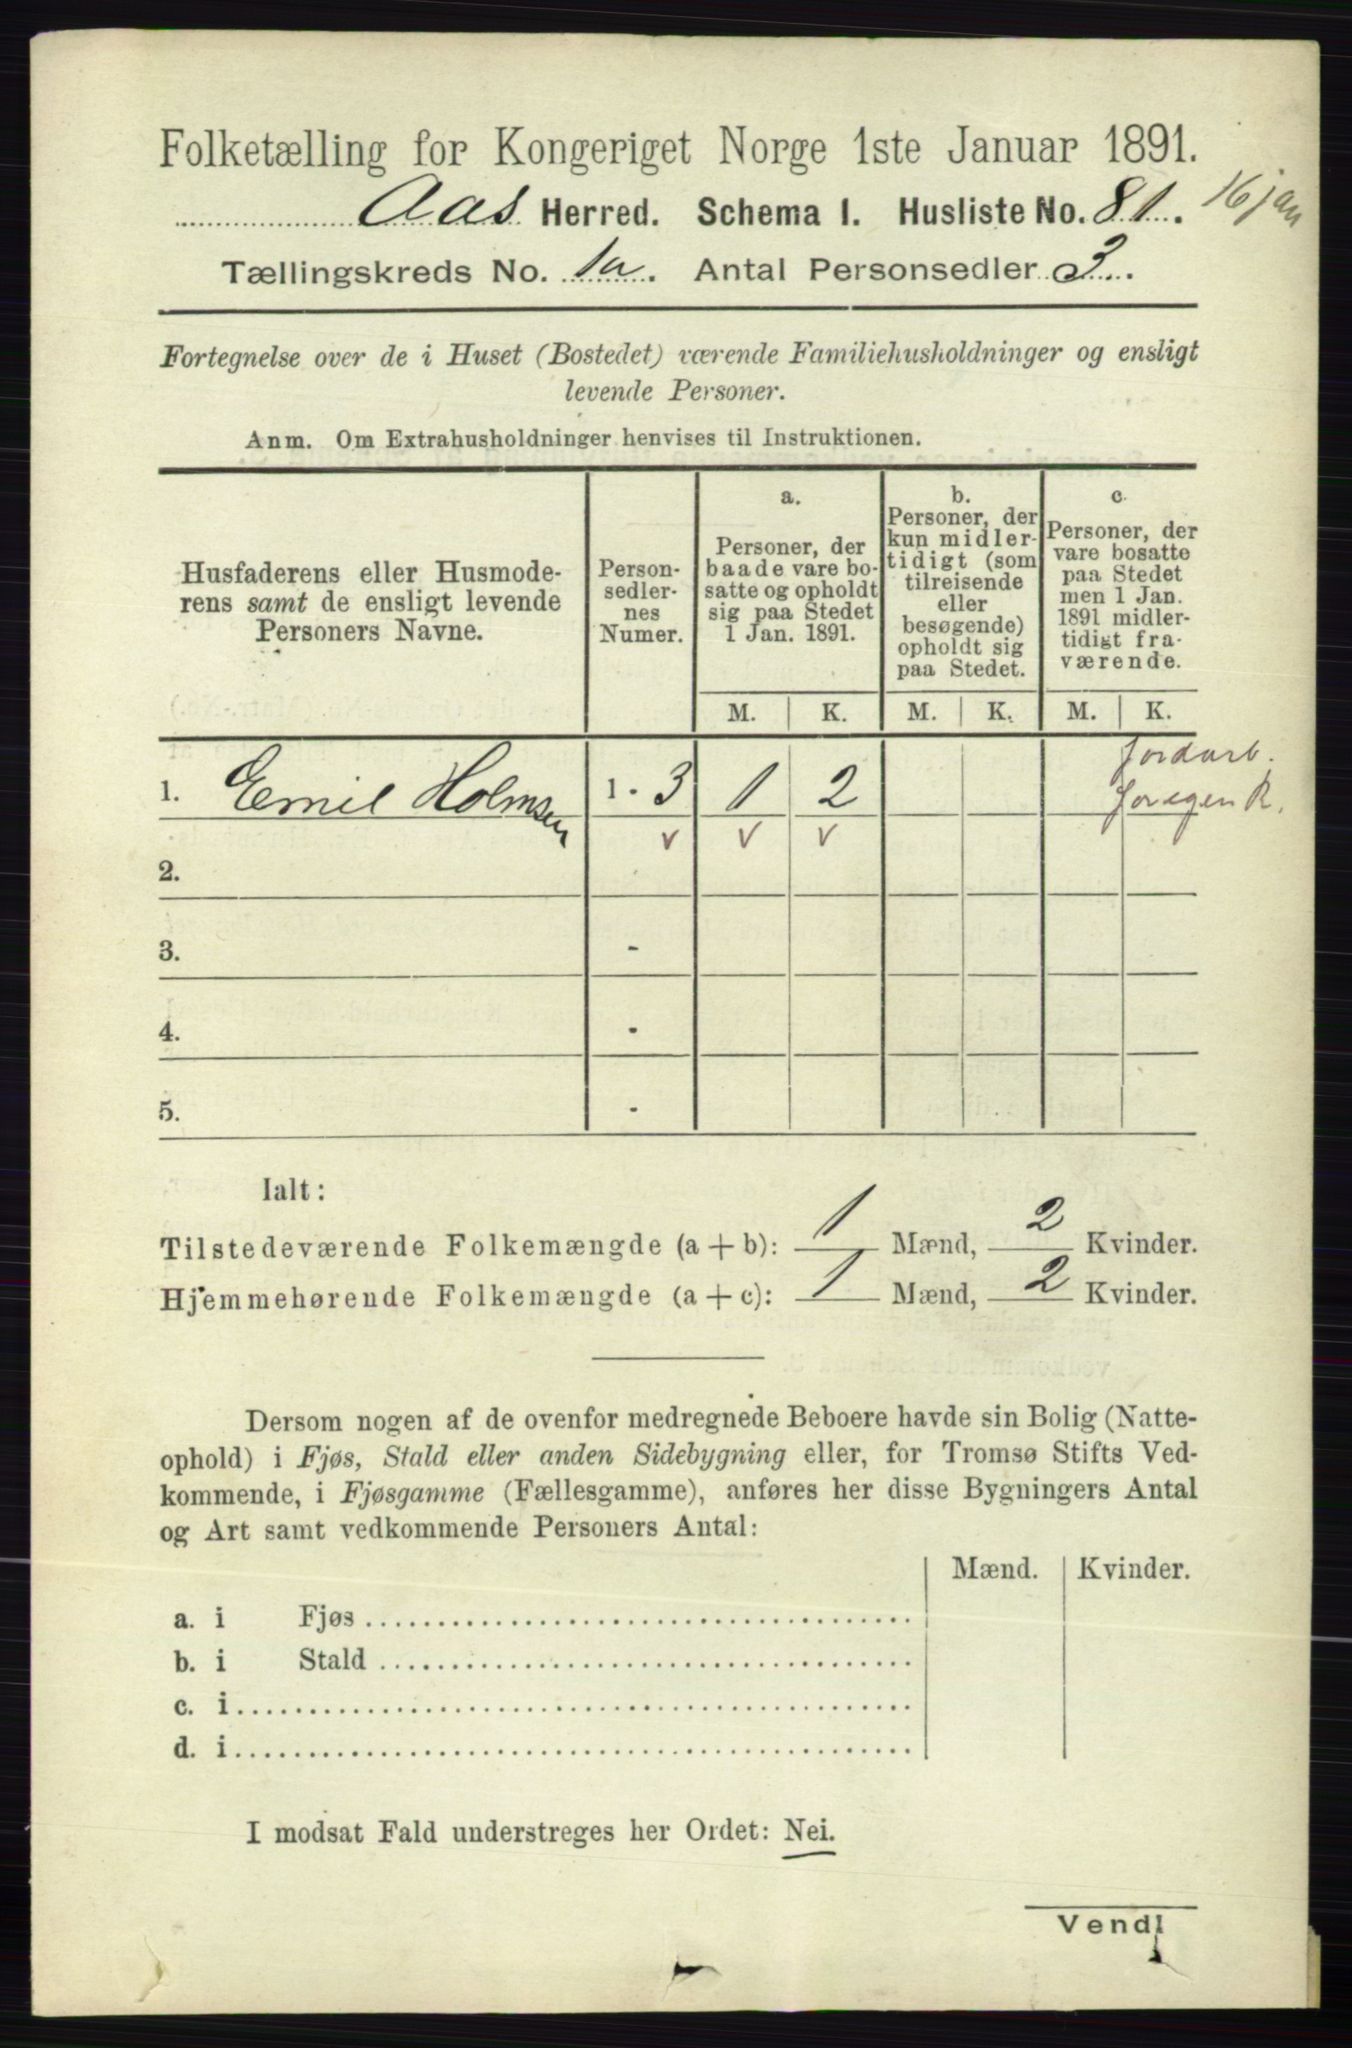 Folketælling for Kongeriget Norge 1ste Januar 1891.
Aas Herred. Schema I. Husliste No. 81. 16 jan
Tællingskreds No. 1a. Antal Personsedler 3.
Fortegnelse over de i Huset (Bostedet) værende Familiehusholdninger og ensligt
levende Personer.
Anm. Om Extrahusholdninger henvises til Instruktionen.
Husfaderens eller Husmode-
rens samt de ensligt levende
Personers Navne.
Person-
sedler-
nes
Numer.
a.
Personer, der
baade vare bo-
satte og opholdt
sig paa Stedet
1 Jan. 1891.
b.
Personer, der
kun midler-
tidigt (som
tilreisende
eller
besøgende)
opholdt sig
paa Stedet.
c.
Personer, der
vare bosatte
paa Stedet
men 1 Jan.
1891 midler-
tidigt fra-
værende.
M. K. M. K. M. K.
jordarb.
1. Emil Holmsen 1 - 3 1 2 for egen R.
v v v
2.
3. -
4. -
5. -
Ialt:
Tilstedeværende Folkemængde (a + b): 1 Mænd, 2 Kvinder.
Hjemmehørende Folkemængde (a + c): 1 Mænd, 2 Kvinder.
Dersom nogen af de ovenfor medregnede Beboere havde sin Bolig (Natte-
ophold) i Fjøs, Stald eller anden Sidebygning eller, for Tromsø Stifts Ved-
kommende, i Fjøsgamme (Fællesgamme), anføres her disse Bygningers Antal
og Art samt vedkommende Personers Antal:
Mænd. Kvinder.
a. i Fjøs
b. i Stald
c. i
d. i
I modsat Fald understreges her Ordet: Nei.
Vend!